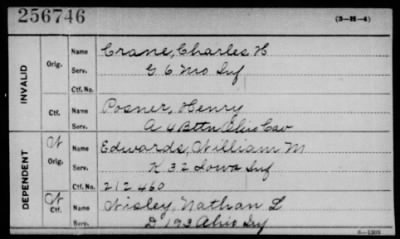 256746 (3-H-4)
INVALID
Orig. Name Crane, Charles H
Serv. G 6 Mo Inf
Ctf. No.
Ctf. Name Posner, Henry
Serv. A 4 Battn Ohio Cav
DEPENDENT
W Orig. Name Edwards, William M
Serv. K 32 Iowa Inf
Ctf. No. 212460
W Ctf. Name Nisley, Nathan L
Serv. D 193 Ohio Inf